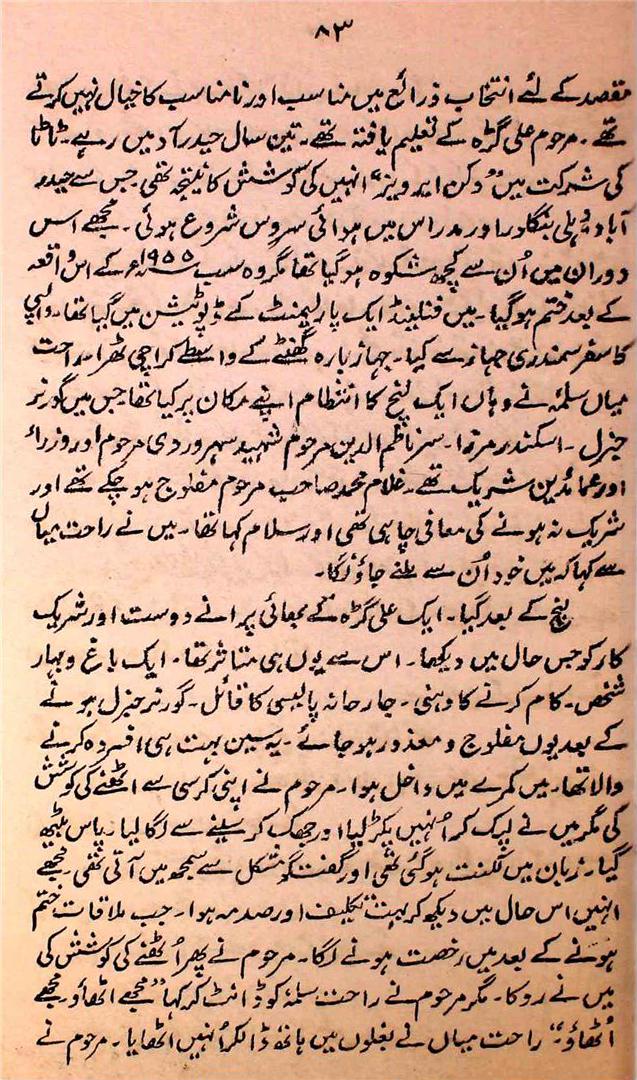 ۸۳
مقصد کے لئے انتخاب ذرائع میں مناسب اور نامناسب کا خیال نہیں کرتے
تھے۔ مرحوم علی گڑھ کے تعلیم یافتہ تھے۔ تین سال حیدرآباد میں رہے۔ ٹاٹا
کی شرکت میں "دکن ایرویز" انہیں کی کوشش کا نتیجہ تھی جس سے حیدر
آباد دہلی بنگلور اور مدراس میں ہوائی سروس شروع ہوئی۔ مجھے اس
دوران میں اُن سے کچھ شکوہ ہوگیا تھا مگر وہ سب ۱۹۵۵ء کے اس واقعہ
کے بعد ختم ہوگیا۔ میں فنلینڈ ایک پارلیمنٹ کے ڈپوٹیشن میں گیا تھا۔ واپسی
کا سفر سمندری جہاز سے کیا۔ جہاز بارہ گھنٹے کے واسطے کراچی ٹھہرا۔ راحت
میاں سلمہٗ نے وہاں ایک لنچ کا انتظام اپنے مکان پر کیا تھا جس میں گورنر
جنرل۔ اسکندر مرزا۔ سر ناظم الدین مرحوم شہید سہروردی مرحوم اور وزراء
اور عمائدین شریک تھے۔ غلام محمد صاحب مرحوم مفلوج ہو چکے تھے اور
شریک نہ ہونے کی معافی چاہی تھی اور سلام کہا تھا۔ میں نے راحت میاں
سے کہا کہ میں خود اُن سے ملنے جاؤنگا۔
لنچ کے بعد گیا۔ ایک علی گڑھ کے بھائی پرانے دوست اور شریک
کار کو جس حال میں دیکھا۔ اس سے یوں ہی متاثر تھا۔ ایک باغ و بہار
شخص۔ کام کرنے کا دھنی۔ جارحانہ پالیسی کا قائل۔ گورنر جنرل ہونے
کے بعد یوں مفلوج و معذور ہو جائے۔ یہ سین بہت ہی افسردہ کرنے
والا تھا۔ میں کمرے میں داخل ہوا۔ مرحوم نے اپنی کرسی سے اٹھنے کی کوشش
کی مگر میں نے لپک کر اُنہیں پکڑ لیا اور جھک کر سینے سے لگا لیا۔ پاس بیٹھ
گیا۔ زبان میں لکنت ہوگئی تھی اور گفتگو مشکل سے سمجھ میں آتی تھی۔ مجھے
انہیں اس حال میں دیکھ کر بہت تکلیف اور صدمہ ہوا۔ جب ملاقات ختم
ہونے کے بعد میں رخصت ہونے لگا۔ مرحوم نے پھر اُٹھنے کی کوشش کی
میں نے روکا۔ مگر مرحوم نے راحت سلمہٗ کو ڈانٹ کر کہا "مجھے اٹھاؤ۔ مجھے
اُٹھاؤ۔" راحت میاں نے بغلوں میں ہاتھ ڈالکر اُنہیں اٹھایا۔ مرحوم نے